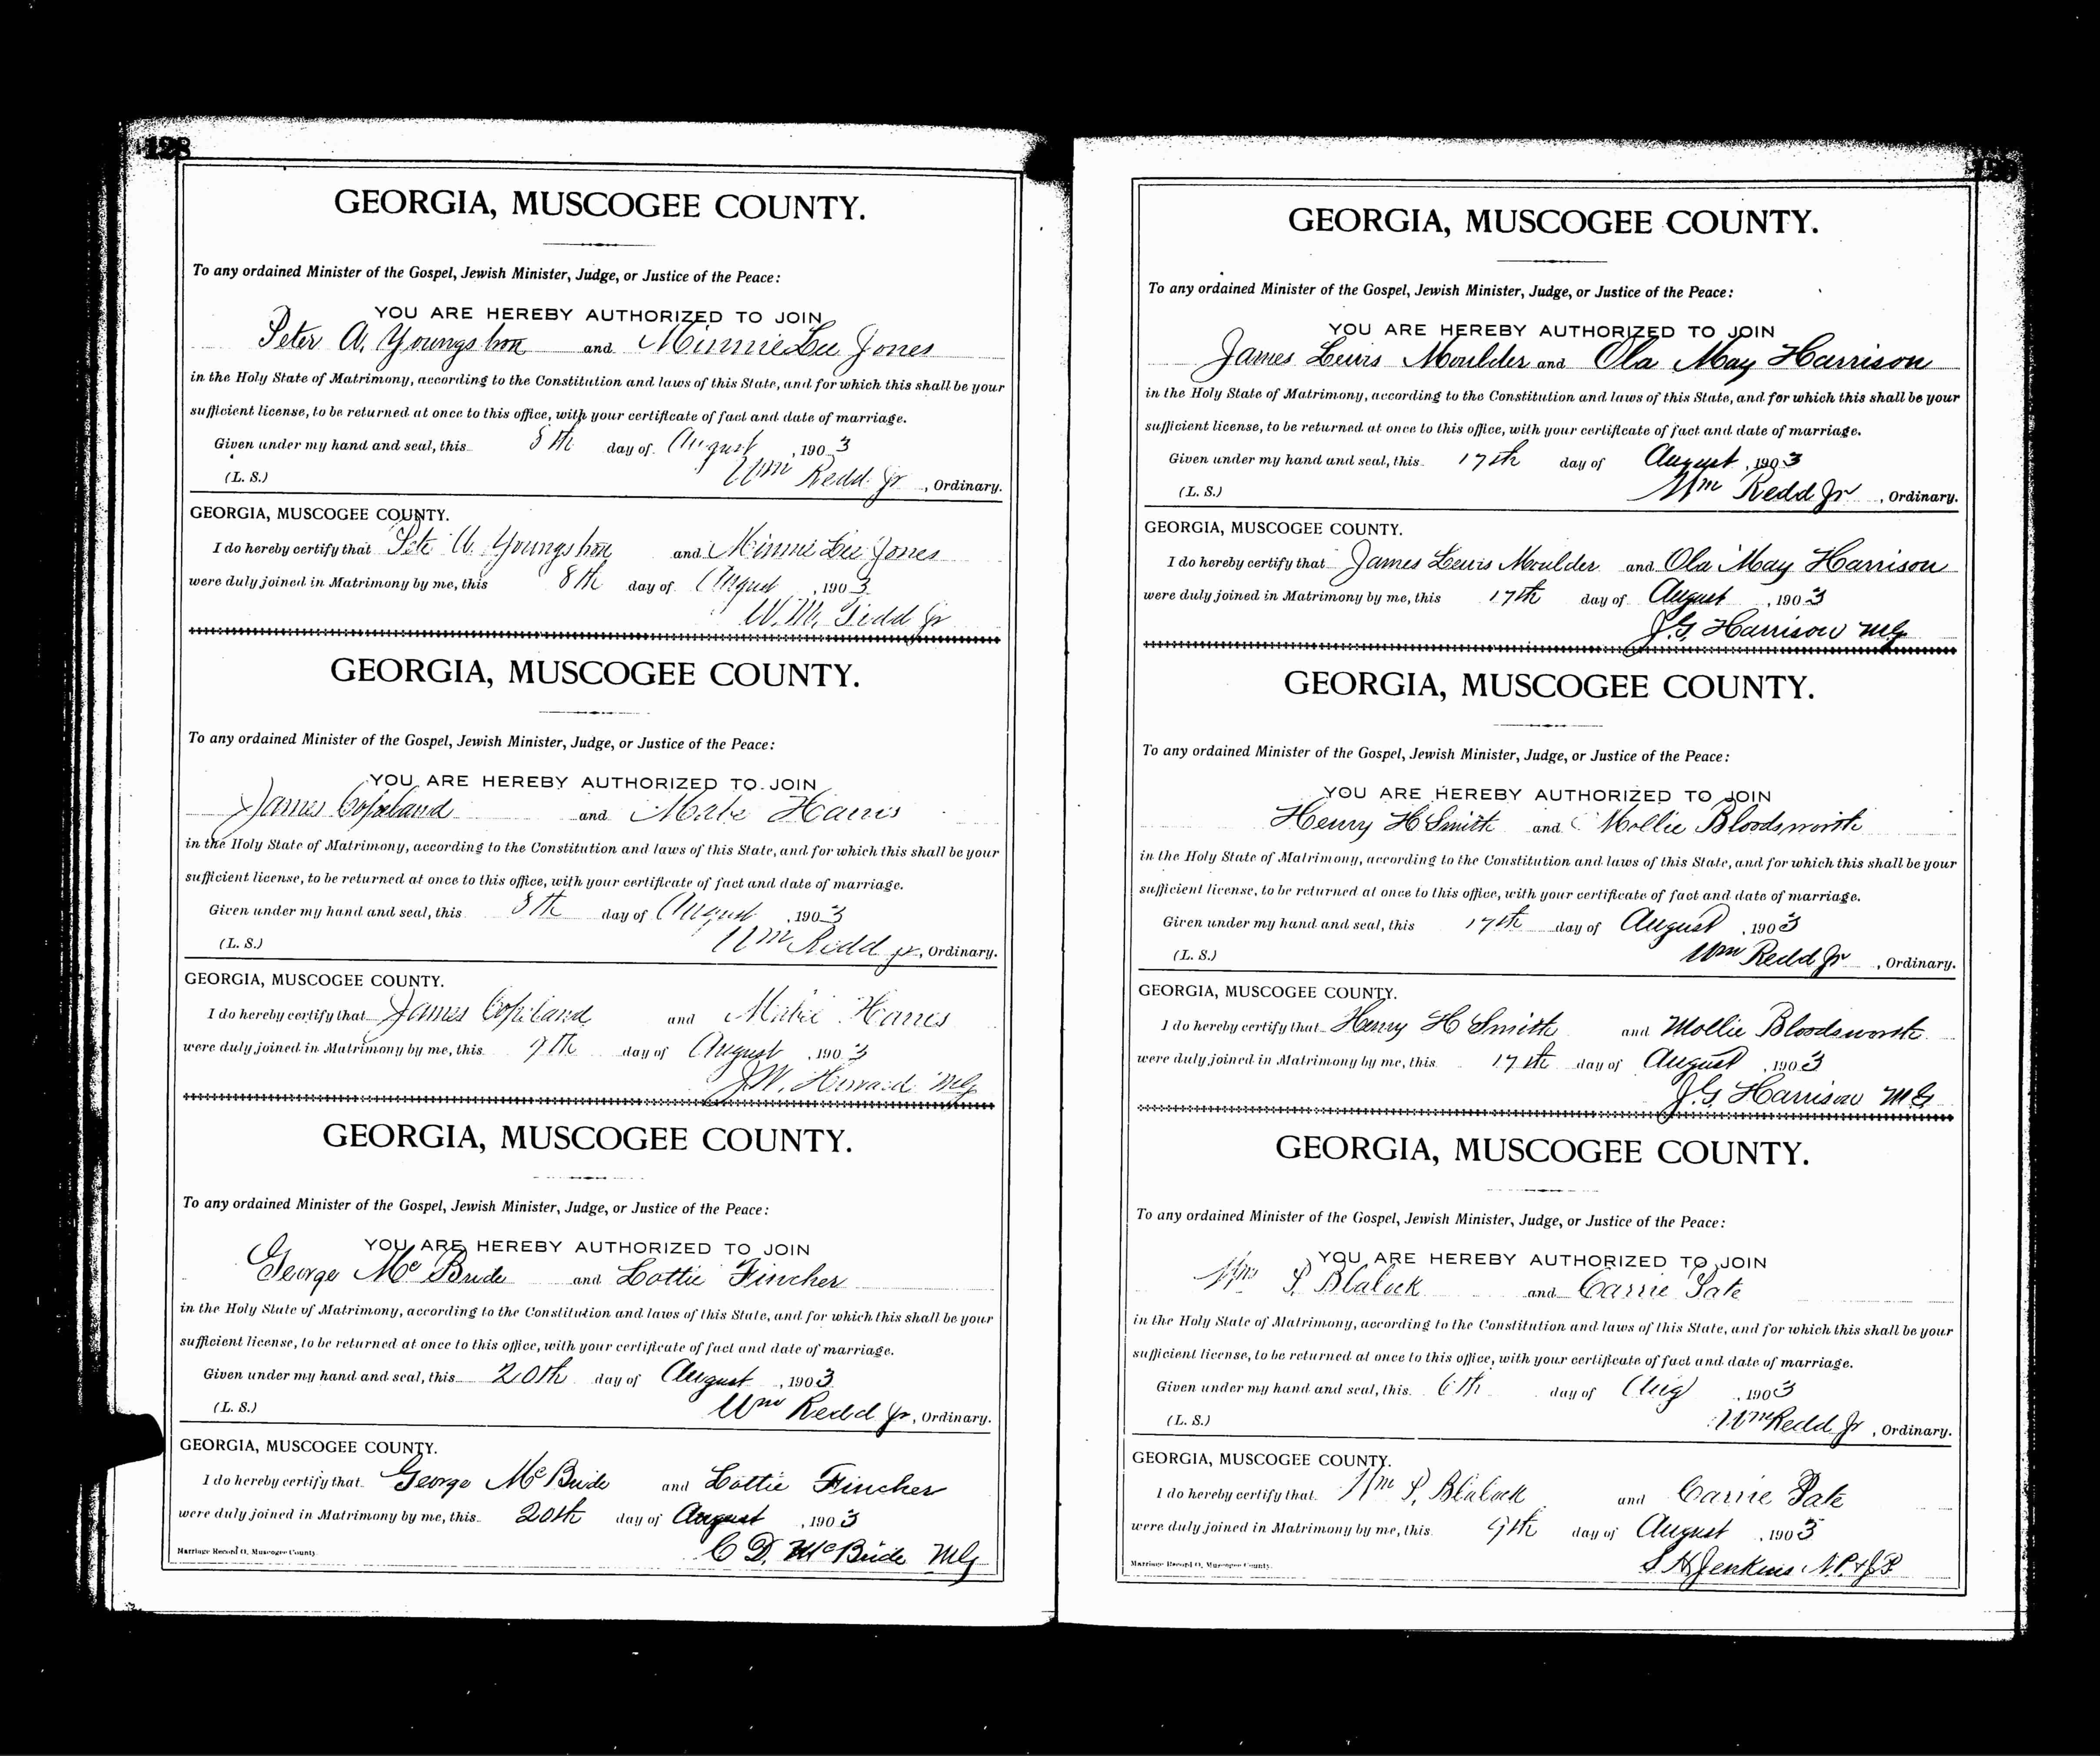 128
GEORGIA, MUSCOGEE COUNTY.
To any ordained Minister of the Gospel, Jewish Minister, Judge, or Justice of the Peace:
YOU ARE HEREBY AUTHORIZED TO JOIN
Peter A. Youngs and Minnie Lee Jones
in the Holy State of Matrimony, according to the Constitution and laws of this State, and for which this shall be your
sufficient license, to be returned at once to this office, with your certificate of fact and date of marriage.
Given under my hand and seal, this 8th day of August, 1903
(L. S.) Wm Redd Jr, Ordinary.
GEORGIA, MUSCOGEE COUNTY.
I do hereby certify that Pete A. Youngs and Minnie Lee Jones
were duly joined in Matrimony by me, this 8th day of August, 1903
W.M. Jr
GEORGIA, MUSCOGEE COUNTY.
To any ordained Minister of the Gospel, Jewish Minister, Judge, or Justice of the Peace:
YOU ARE HEREBY AUTHORIZED TO JOIN
James Copeland and Harris
in the Holy State of Matrimony, according to the Constitution and laws of this State, and for which this shall be your
sufficient license, to be returned at once to this office, with your certificate of fact and date of marriage.
Given under my hand and seal, this 8th day of August, 1903
(L. S.) Wm Redd Jr, Ordinary.
GEORGIA, MUSCOGEE COUNTY.
I do hereby certify that James Copeland and Harris
were duly joined in Matrimony by me, this 9th day of August, 1903
J.W. Howard MG
GEORGIA, MUSCOGEE COUNTY.
To any ordained Minister of the Gospel, Jewish Minister, Judge, or Justice of the Peace:
YOU ARE HEREBY AUTHORIZED TO JOIN
George McBride and Lottie Fincher
in the Holy State of Matrimony, according to the Constitution and laws of this State, and for which this shall be your
sufficient license, to be returned at once to this office, with your certificate of fact and date of marriage.
Given under my hand and seal, this 20th day of August, 1903
(L. S.) Wm Redd Jr, Ordinary.
GEORGIA, MUSCOGEE COUNTY.
I do hereby certify that George McBride and Lottie Fincher
were duly joined in Matrimony by me, this 20th day of August, 1903
Marriage Record O, Muscogee County. C D. McBride MG
GEORGIA, MUSCOGEE COUNTY.
To any ordained Minister of the Gospel, Jewish Minister, Judge, or Justice of the Peace:
YOU ARE HEREBY AUTHORIZED TO JOIN
James Lewis Moulder and Ola May Harrison
in the Holy State of Matrimony, according to the Constitution and laws of this State, and for which this shall be your
sufficient license, to be returned at once to this office, with your certificate of fact and date of marriage.
Given under my hand and seal, this 17th day of August, 1903
(L. S.) Wm Redd Jr, Ordinary.
GEORGIA, MUSCOGEE COUNTY.
I do hereby certify that James Lewis Moulder and Ola May Harrison
were duly joined in Matrimony by me, this 17th day of August, 1903
J.G. Harrison MG
GEORGIA, MUSCOGEE COUNTY.
To any ordained Minister of the Gospel, Jewish Minister, Judge, or Justice of the Peace:
YOU ARE HEREBY AUTHORIZED TO JOIN
Henry H Smith and Mollie Bloodsworth
in the Holy State of Matrimony, according to the Constitution and laws of this State, and for which this shall be your
sufficient license, to be returned at once to this office, with your certificate of fact and date of marriage.
Given under my hand and seal, this 17th day of August, 1903
(L. S.) Wm Redd Jr, Ordinary.
GEORGIA, MUSCOGEE COUNTY.
I do hereby certify that Henry H Smith and Mollie Bloodsworth
were duly joined in Matrimony by me, this 17th day of August, 1903
J.G. Harrison MG
GEORGIA, MUSCOGEE COUNTY.
To any ordained Minister of the Gospel, Jewish Minister, Judge, or Justice of the Peace:
YOU ARE HEREBY AUTHORIZED TO JOIN
Wm P. Blalock and Carrie Pate
in the Holy State of Matrimony, according to the Constitution and laws of this State, and for which this shall be your
sufficient license, to be returned at once to this office, with your certificate of fact and date of marriage.
Given under my hand and seal, this 6th day of Aug, 1903
(L. S.) Wm Redd Jr, Ordinary.
GEORGIA, MUSCOGEE COUNTY.
I do hereby certify that Wm P. Blalock and Carrie Pate
were duly joined in Matrimony by me, this 9th day of August, 1903
Marriage Record O, Muscogee County. S H Jenkins N.P. & J.P